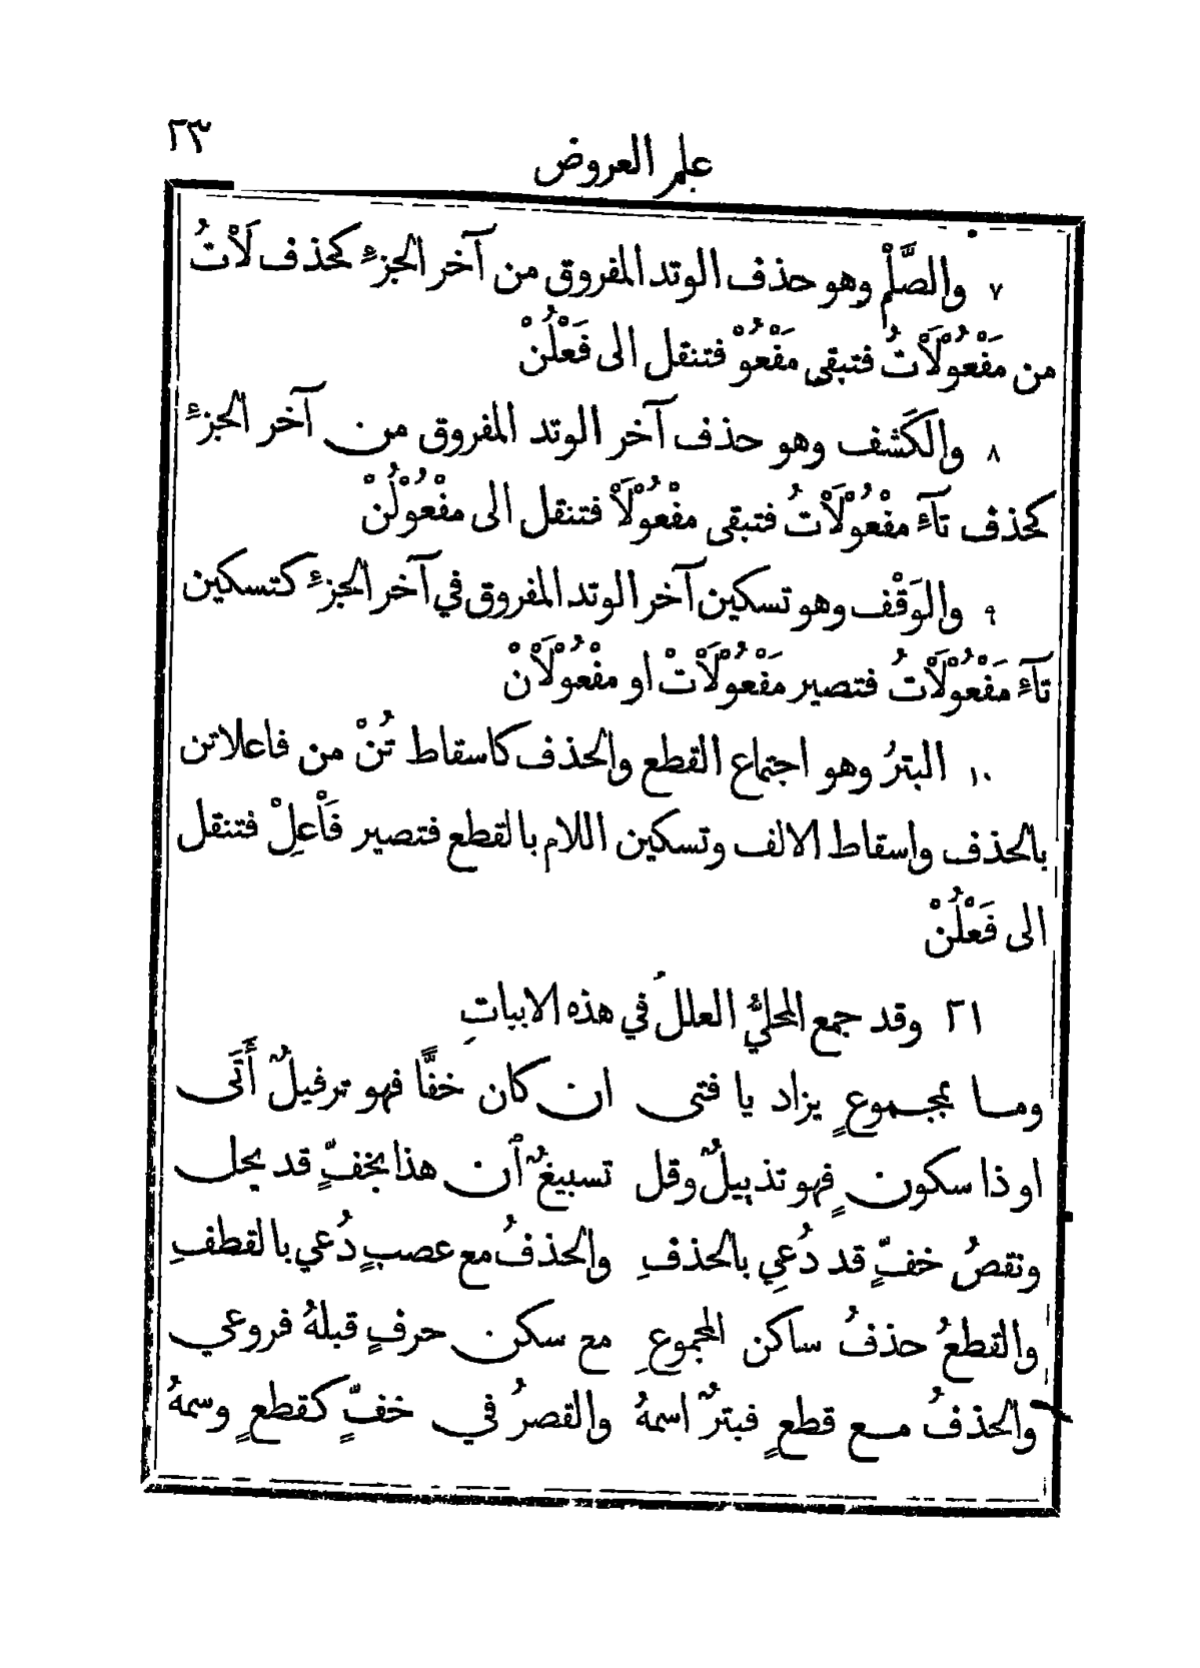 ٢٣
علم العروض
٧ والصَّلْمُ وهو حذف الوتد المفروق من آخر الجزءِ كحذف لَاْتُ
من مَفْعُوْلَاْتُ فتبقى مَفْعُوْ فتنقل الى فَعْلُنْ
٨ والكَشف وهو حذف آخر الوتد المفروق من آخر الجزءِ
كحذف تآءِ مفْعُوْلَاْتُ فتبقى مفْعُوْلَاْ فتنقل الى مفْعُوْلُنْ
٩ والوَقْف وهو تسكين آخر الوتد المفروق في آخر الجزءِ كتسكين
تآءِ مَفْعُوْلَاْتُ فتصير مَفْعُوْلَاْتْ او مفْعُوْلَاْنْ
١٠ البترُ وهو اجتماع القطع والحذف كاسقاط تُنْ من فاعلاتن
بالحذف واسقاط الالف وتسكين اللام بالقطع فتصير فَاْعِلْ فتنقل
الى فَعْلُنْ
٢١ وقد جمع المحليُّ العللَ في هذه الابياتِ
وما بمجموعٍ يزاد يا فتى ان كان خفًّا فهو ترفيلٌ أَتَى
او ذا سكونٍ فهو تذييلٌ وقل تسبيغٌ أن هذا بخفٍّ قد يحل
ونقصُ خفٍّ قد دُعِي بالحذفِ والحذفُ مع عصبٍ دُعي بالقطفِ
والقطعُ حذفُ ساكن المجموعِ مع سكن حرفٍ قبلهُ فروعي
والحذفُ مع قطعٍ فبترٌ اسمهُ والقصرُ في خفٍّ كقطعٍ وسمهُ